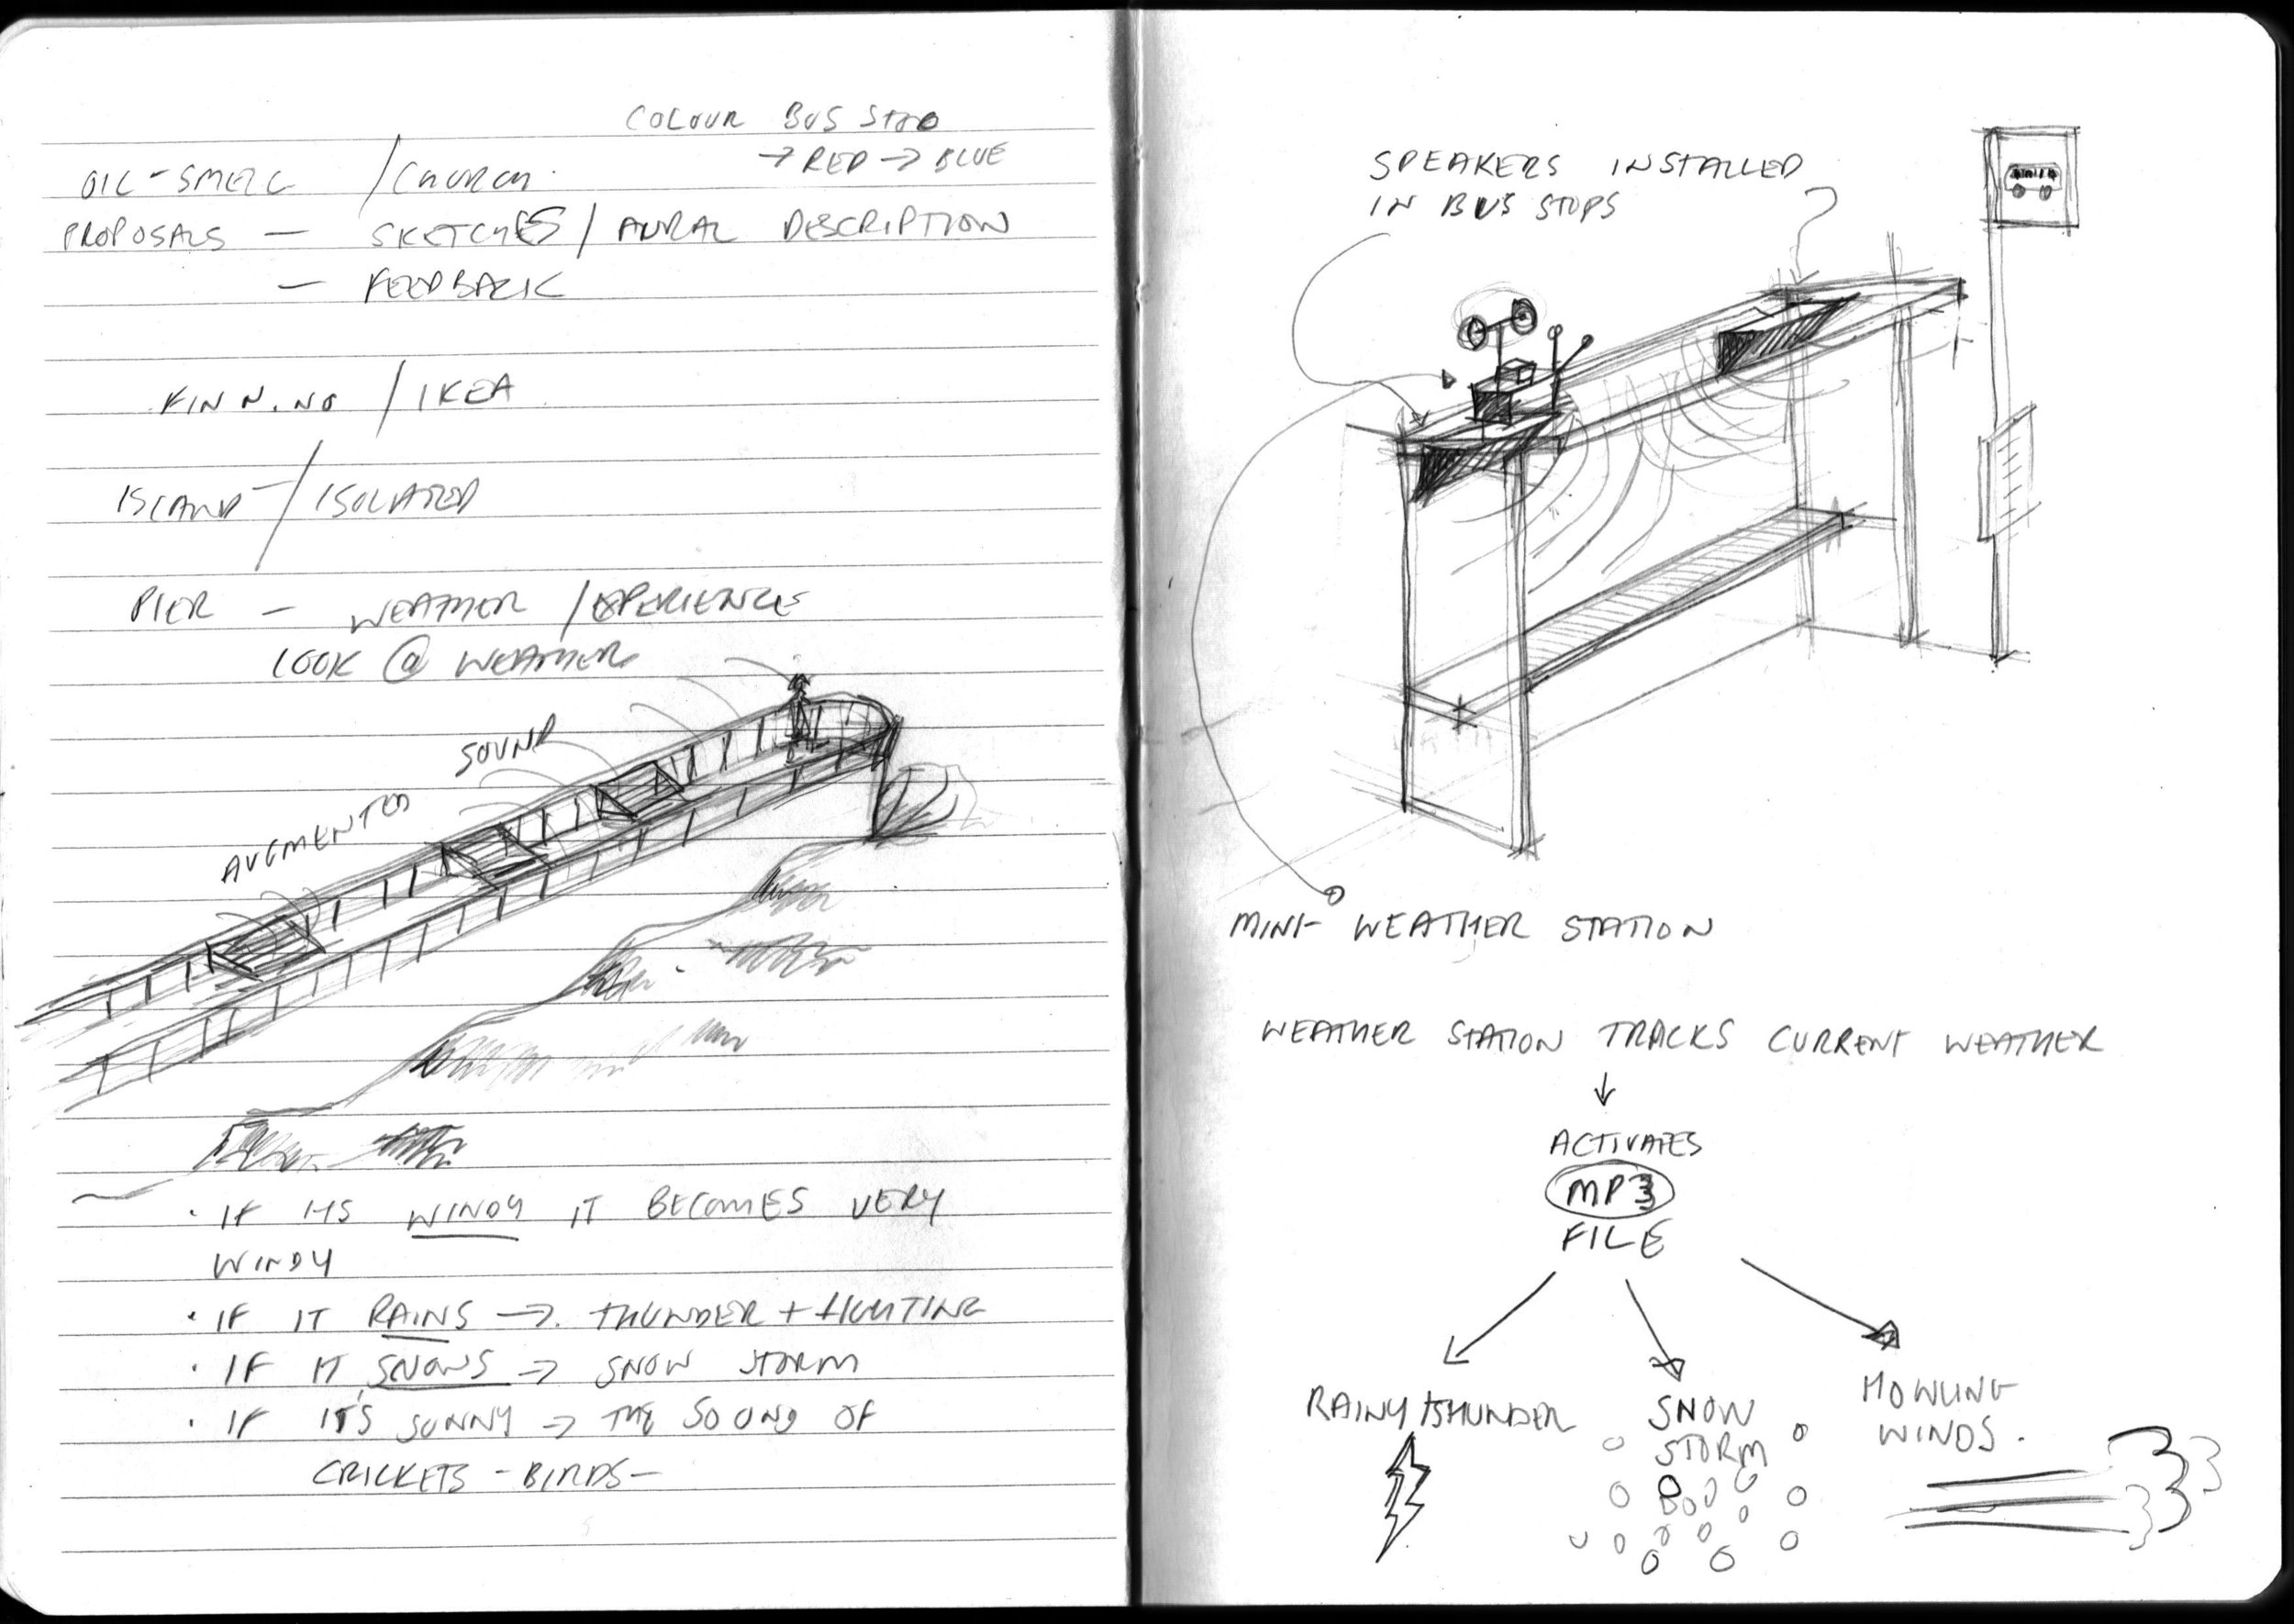 COLOUR BUS STOP
→ RED → BLUE
OIL-SMELL / CHURCH.
PROPOSALS — SKETCHES / AURAL DESCRIPTION
— FEEDBACK
FINN.NO / IKEA
ISLAND / ISOLATED
PIER — WEATHER / EXPERIENCE
LOOK @ WEATHER
AUGMENTED SOUND
· IF ITS WINDY IT BECOMES VERY
WINDY
· IF IT RAINS → THUNDER + LIGHTING
· IF IT SNOWS → SNOW STORM
· IF IT'S SUNNY → THE SOUND OF
CRICKETS - BIRDS —
SPEAKERS INSTALLED
IN BUS STOPS
MINI- WEATHER STATION
WEATHER STATION TRACKS CURRENT WEATHER
↓
ACTIVATES
MP3
FILE
RAINY/THUNDER
SNOW
STORM
HOWLING
WINDS.